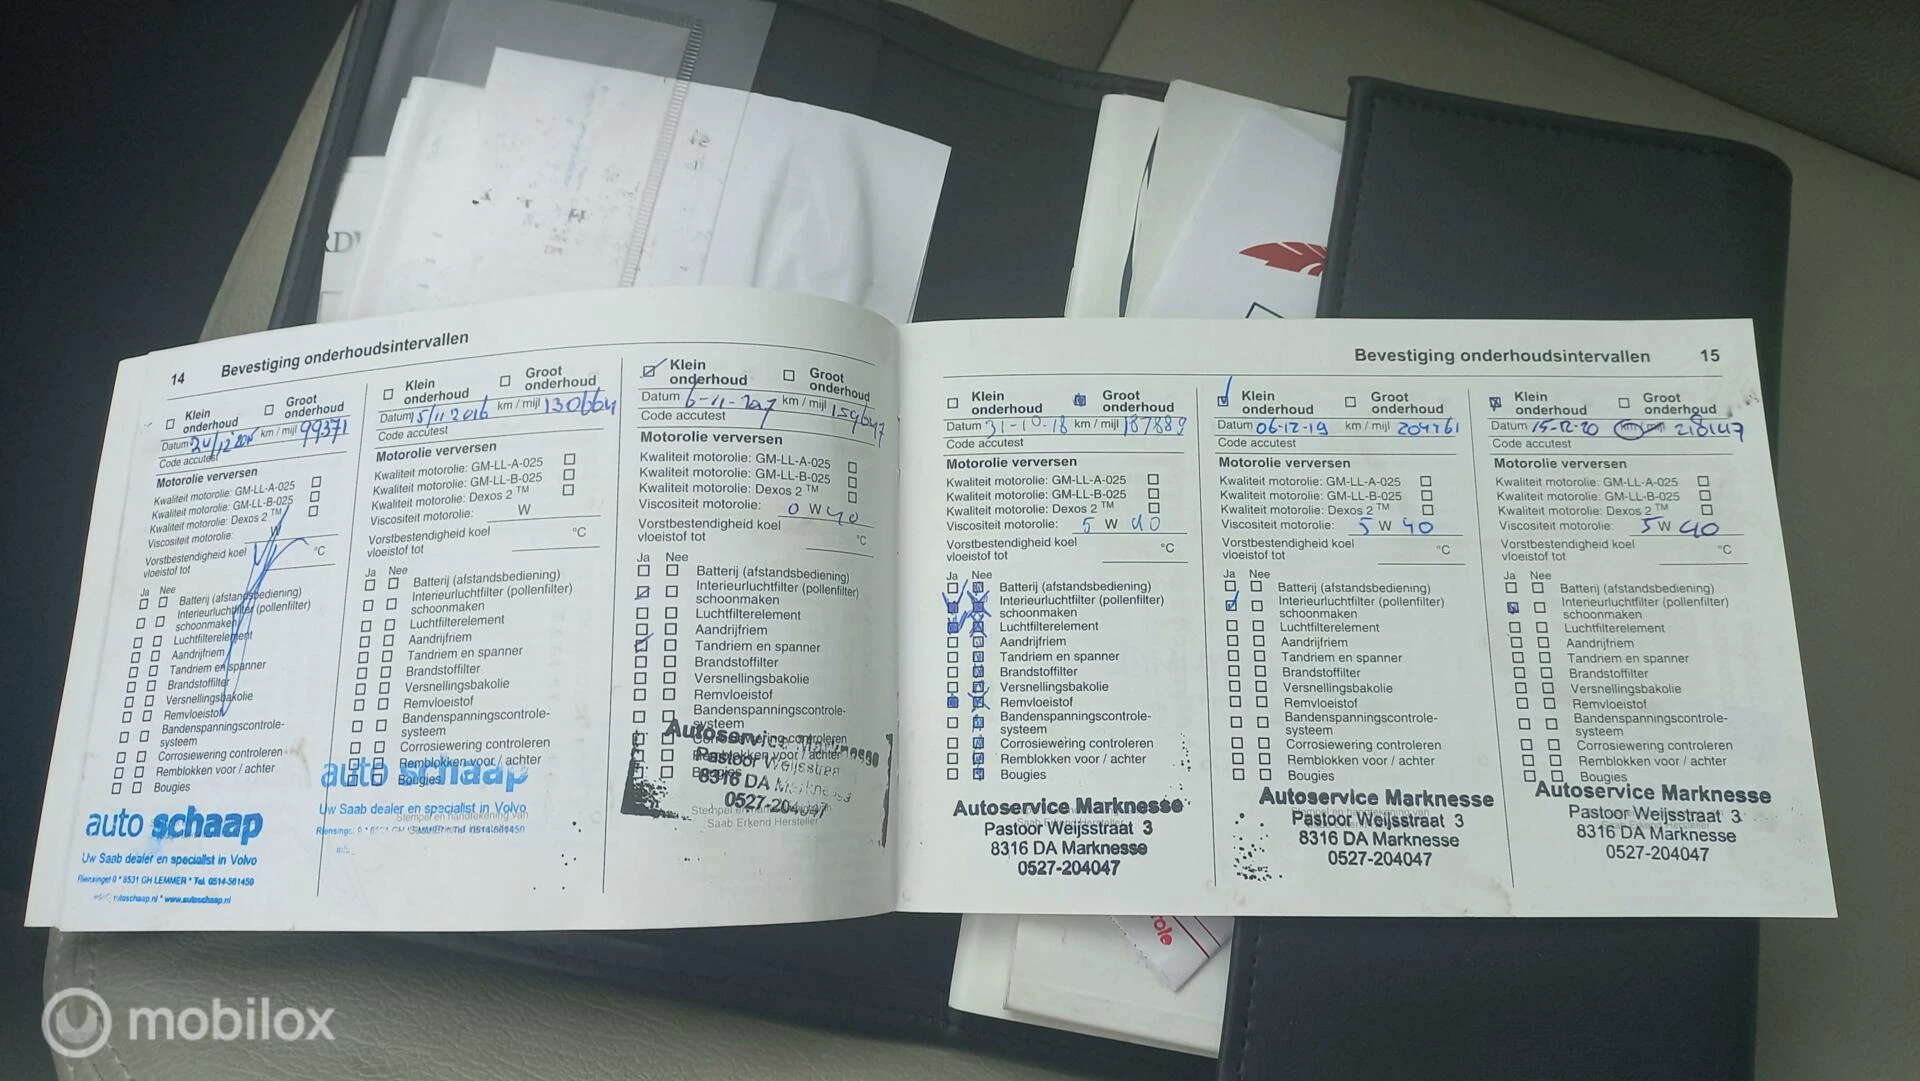 14 Bevestiging onderhoudsintervallen
Klein onderhoud
Groot onderhoud
Datum km / mijl 99371
Code accutest
Motorolie verversen
Kwaliteit motorolie: GM-LL-A-025
Kwaliteit motorolie: GM-LL-B-025
Kwaliteit motorolie: Dexos 2 ™
Viscositeit motorolie: W
Vorstbestendigheid koel
vloeistof tot °C
Ja Nee
Batterij (afstandsbediening)
Interieurluchtfilter (pollenfilter)
schoonmaken
Luchtfilterelement
Aandrijfriem
Tandriem en spanner
Brandstoffilter
Versnellingsbakolie
Remvloeistof
Bandenspanningscontrole-
systeem
Corrosiewering controleren
Remblokken voor / achter
Bougies
auto schaap
Uw Saab dealer en specialist in Volvo
8531 GH LEMMER * Tel. 0514-561450
www.autoschaap.nl
Klein onderhoud
Groot onderhoud
Datum 15/11 2016 km / mijl 130664
Code accutest
Motorolie verversen
Kwaliteit motorolie: GM-LL-A-025
Kwaliteit motorolie: GM-LL-B-025
Kwaliteit motorolie: Dexos 2 ™
Viscositeit motorolie: W
Vorstbestendigheid koel
vloeistof tot °C
Ja Nee
Batterij (afstandsbediening)
Interieurluchtfilter (pollenfilter)
schoonmaken
Luchtfilterelement
Aandrijfriem
Tandriem en spanner
Brandstoffilter
Versnellingsbakolie
Remvloeistof
Bandenspanningscontrole-
systeem
Corrosiewering controleren
Remblokken voor / achter
Bougies
auto schaap
Uw Saab dealer en specialist in Volvo
Klein onderhoud
Groot onderhoud
Datum 6-11-2017 km / mijl 159647
Code accutest
Motorolie verversen
Kwaliteit motorolie: GM-LL-A-025
Kwaliteit motorolie: GM-LL-B-025
Kwaliteit motorolie: Dexos 2 ™
Viscositeit motorolie: 0 W 40
Vorstbestendigheid koel
vloeistof tot °C
Ja Nee
Batterij (afstandsbediening)
Interieurluchtfilter (pollenfilter)
schoonmaken
Luchtfilterelement
Aandrijfriem
Tandriem en spanner
Brandstoffilter
Versnellingsbakolie
Remvloeistof
Bandenspanningscontrole-
systeem
Corrosiewering controleren
Remblokken voor / achter
Bougies
Autoservice Marknesse
Pastoor Weijsstraat
8316 DA Marknesse
0527-204047
Saab Erkend Hersteller
Bevestiging onderhoudsintervallen 15
Klein onderhoud
Groot onderhoud
Datum 31-10-18 km / mijl 187889
Code accutest
Motorolie verversen
Kwaliteit motorolie: GM-LL-A-025
Kwaliteit motorolie: GM-LL-B-025
Kwaliteit motorolie: Dexos 2 ™
Viscositeit motorolie: 5 W 40
Vorstbestendigheid koel
vloeistof tot °C
Ja Nee
Batterij (afstandsbediening)
Interieurluchtfilter (pollenfilter)
schoonmaken
Luchtfilterelement
Aandrijfriem
Tandriem en spanner
Brandstoffilter
Versnellingsbakolie
Remvloeistof
Bandenspanningscontrole-
systeem
Corrosiewering controleren
Remblokken voor / achter
Bougies
Autoservice Marknesse
Pastoor Weijsstraat 3
8316 DA Marknesse
0527-204047
Klein onderhoud
Groot onderhoud
Datum 06-12-19 km / mijl 204461
Code accutest
Motorolie verversen
Kwaliteit motorolie: GM-LL-A-025
Kwaliteit motorolie: GM-LL-B-025
Kwaliteit motorolie: Dexos 2 ™
Viscositeit motorolie: 5 W 40
Vorstbestendigheid koel
vloeistof tot °C
Ja Nee
Batterij (afstandsbediening)
Interieurluchtfilter (pollenfilter)
schoonmaken
Luchtfilterelement
Aandrijfriem
Tandriem en spanner
Brandstoffilter
Versnellingsbakolie
Remvloeistof
Bandenspanningscontrole-
systeem
Corrosiewering controleren
Remblokken voor / achter
Bougies
Autoservice Marknesse
Pastoor Weijsstraat 3
8316 DA Marknesse
0527-204047
Klein onderhoud
Groot onderhoud
Datum 15-12-20 km / mijl 218147
Code accutest
Motorolie verversen
Kwaliteit motorolie: GM-LL-A-025
Kwaliteit motorolie: GM-LL-B-025
Kwaliteit motorolie: Dexos 2 ™
Viscositeit motorolie: 5 W 40
Vorstbestendigheid koel
vloeistof tot °C
Ja Nee
Batterij (afstandsbediening)
Interieurluchtfilter (pollenfilter)
schoonmaken
Luchtfilterelement
Aandrijfriem
Tandriem en spanner
Brandstoffilter
Versnellingsbakolie
Remvloeistof
Bandenspanningscontrole-
systeem
Corrosiewering controleren
Remblokken voor / achter
Bougies
Autoservice Marknesse
Pastoor Weijsstraat 3
8316 DA Marknesse
0527-204047
mobilox